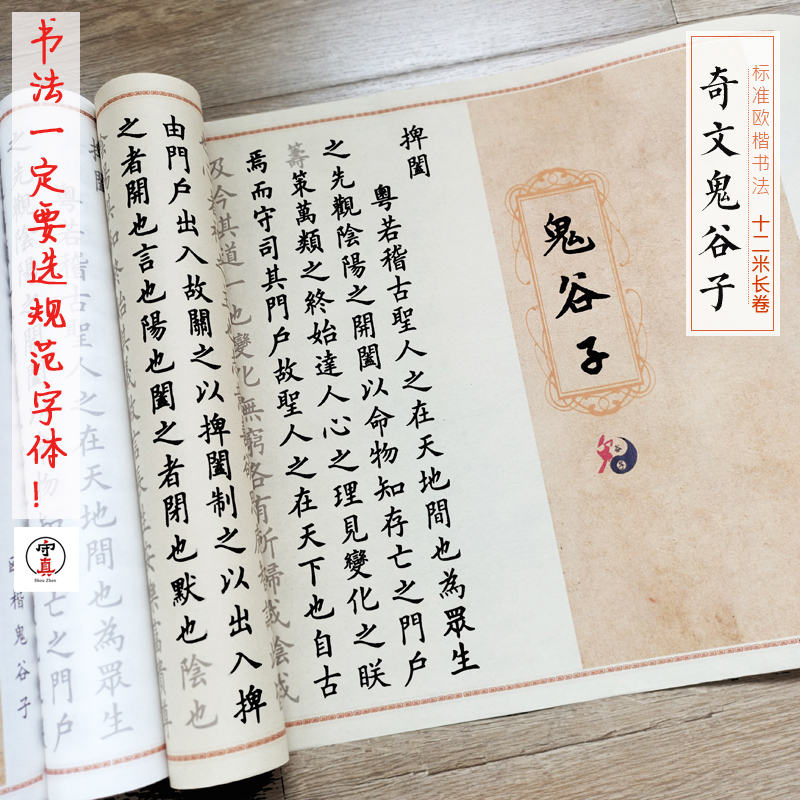 书法一定要选规范字体！
守真
Shou Zhen
奇文鬼谷子
标准欧楷书法 十二米长卷
鬼谷子
捭闔
粵若稽古聖人之在天地間也為眾生
之先觀陰陽之開闔以命物知存亡之門戶
籌策萬類之終始達人心之理見變化之朕
焉而守司其門戶故聖人之在天下也自古
及今其道一也變化無窮各有所歸或陰或
由門戶出入故關之以捭闔制之以出入捭
之者開也言也陽也闔之者閉也默也陰也
捭闔
粵若稽古聖人之在天地間也為眾生
之先觀陰 亡之門戶
楷鬼谷子